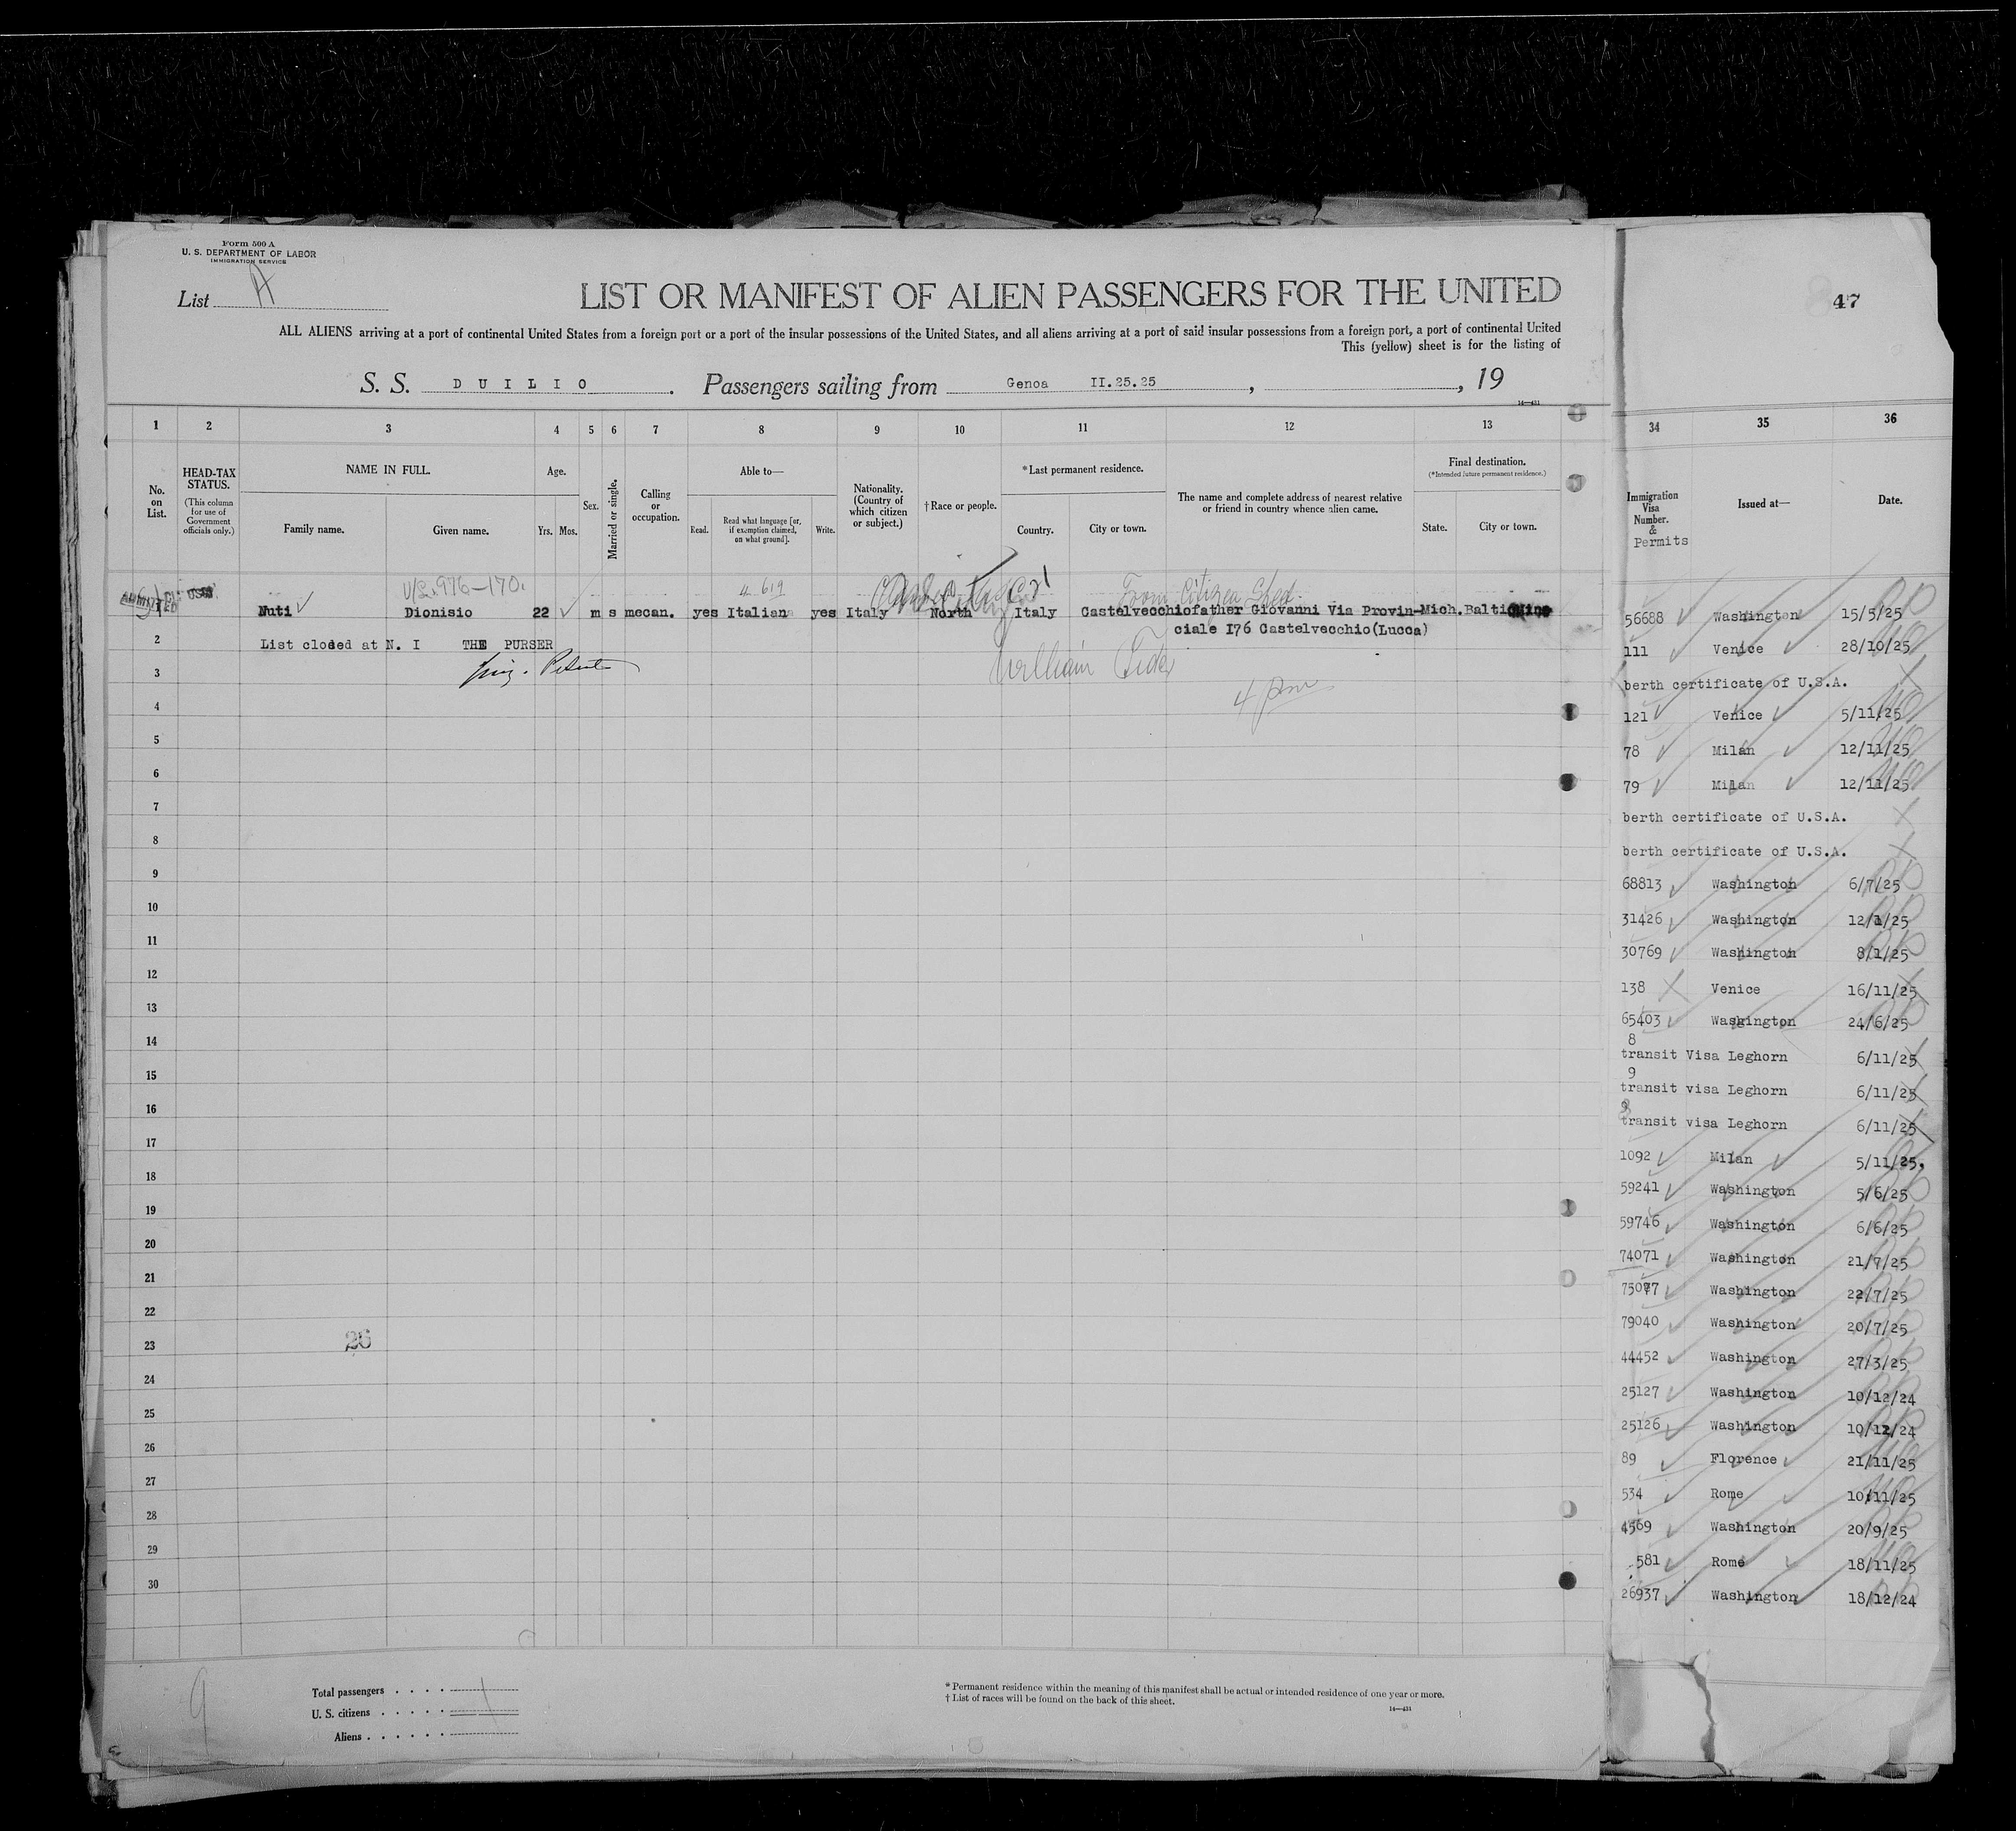 Form 500 A
U. S. DEPARTMENT OF LABOR
IMMIGRATION SERVICE
List A
LIST OR MANIFEST OF ALIEN PASSENGERS FOR THE UNITED
47
ALL ALIENS arriving at a port of continental United States from a foreign port or a port of the insular possessions of the United States, and all aliens arriving at a port of said insular possessions from a foreign port, a port of continental United
This (yellow) sheet is for the listing of
S. S. DUILIO. Passengers sailing from Genoa II.25.25, , 19
14—431
1 2 3 4 5 6 7 8 9 10 11 12 13
No. on List.
HEAD-TAX STATUS.
(This column for use of Government officials only.)
NAME IN FULL.
Family name. Given name.
Age.
Yrs. Mos.
Sex.
Married or single.
Calling or occupation.
Able to—
Read. Read what language [or, if exemption claimed, on what ground]. Write.
Nationality. (Country of which citizen or subject.)
†Race or people.
*Last permanent residence.
Country. City or town.
The name and complete address of nearest relative or friend in country whence alien came.
Final destination.
(*Intended future permanent residence.)
State. City or town.
34 35 36
Immigration Visa Number. & Permits
Issued at—
Date.
976-170
From Citizen Shed.
ADMITTED
1 Nuti Dionisio 22 m s mecan. yes Italian yes Italy North Italy Castelvecchio father Giovanni Via Provin- Mich.
ciale I76 Castelvecchio(Lucca)
2 List closed at N. I THE PURSER
3 William
4 4 pm
5
6
7
8
9
10
11
12
13
14
15
16
17
18
19
20
21
22
23 26
24
25
26
27
28
29
30
56688 Washington 15/5/25
111 Venice 28/10/25
berth certificate of U.S.A.
121 Venice 5/11/25
78 Milan 12/11/25
79 Milan 12/11/25
berth certificate of U.S.A.
berth certificate of U.S.A.
68813 Washington 6/7/25
31426 Washington 12/1/25
30769 Washington 8/1/25
138 Venice 16/11/25
65403 Wasgington 24/6/25
8
transit Visa Leghorn 6/11/25
9
transit visa Leghorn 6/11/25
transit visa Leghorn 6/11/25
1092 Milan 5/11/25.
59241 Washington 5/6/25
59746 Washington 6/6/25
74071 Washington 21/7/25
75077 Washington 22/7/25
79040 Washington 20/7/25
44452 Washington 27/3/25
25127 Washington 10/12/24
25126 Washington 10/12/24
89 Florence 21/11/25
534 Rome 10/11/25
4569 Washington 20/9/25
581 Rome 18/11/25
26937 Washington 18/12/24
9
Total passengers . . . . 1
U. S. citizens . . . . .
Aliens . . . . . .
* Permanent residence within the meaning of this manifest shall be actual or intended residence of one year or more.
† List of races will be found on the back of this sheet.
14—431